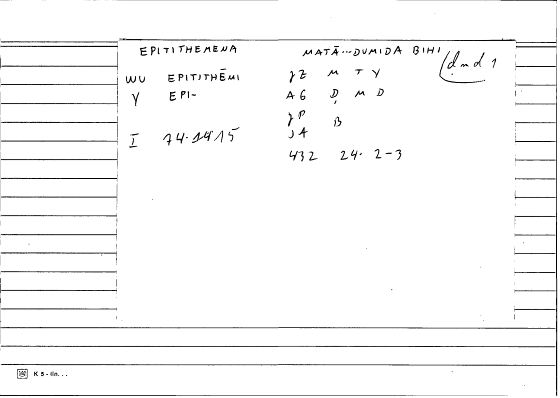 EPITITHEMENA MATĀ...DUMIDA BIHI (ḍmd 1
WU EPITITHĒMI JZ M T Y
Y EPI- AG Ḍ M D
JP B
I 74.1415 JA
432 24. 2-3
K 5 - lin. . .